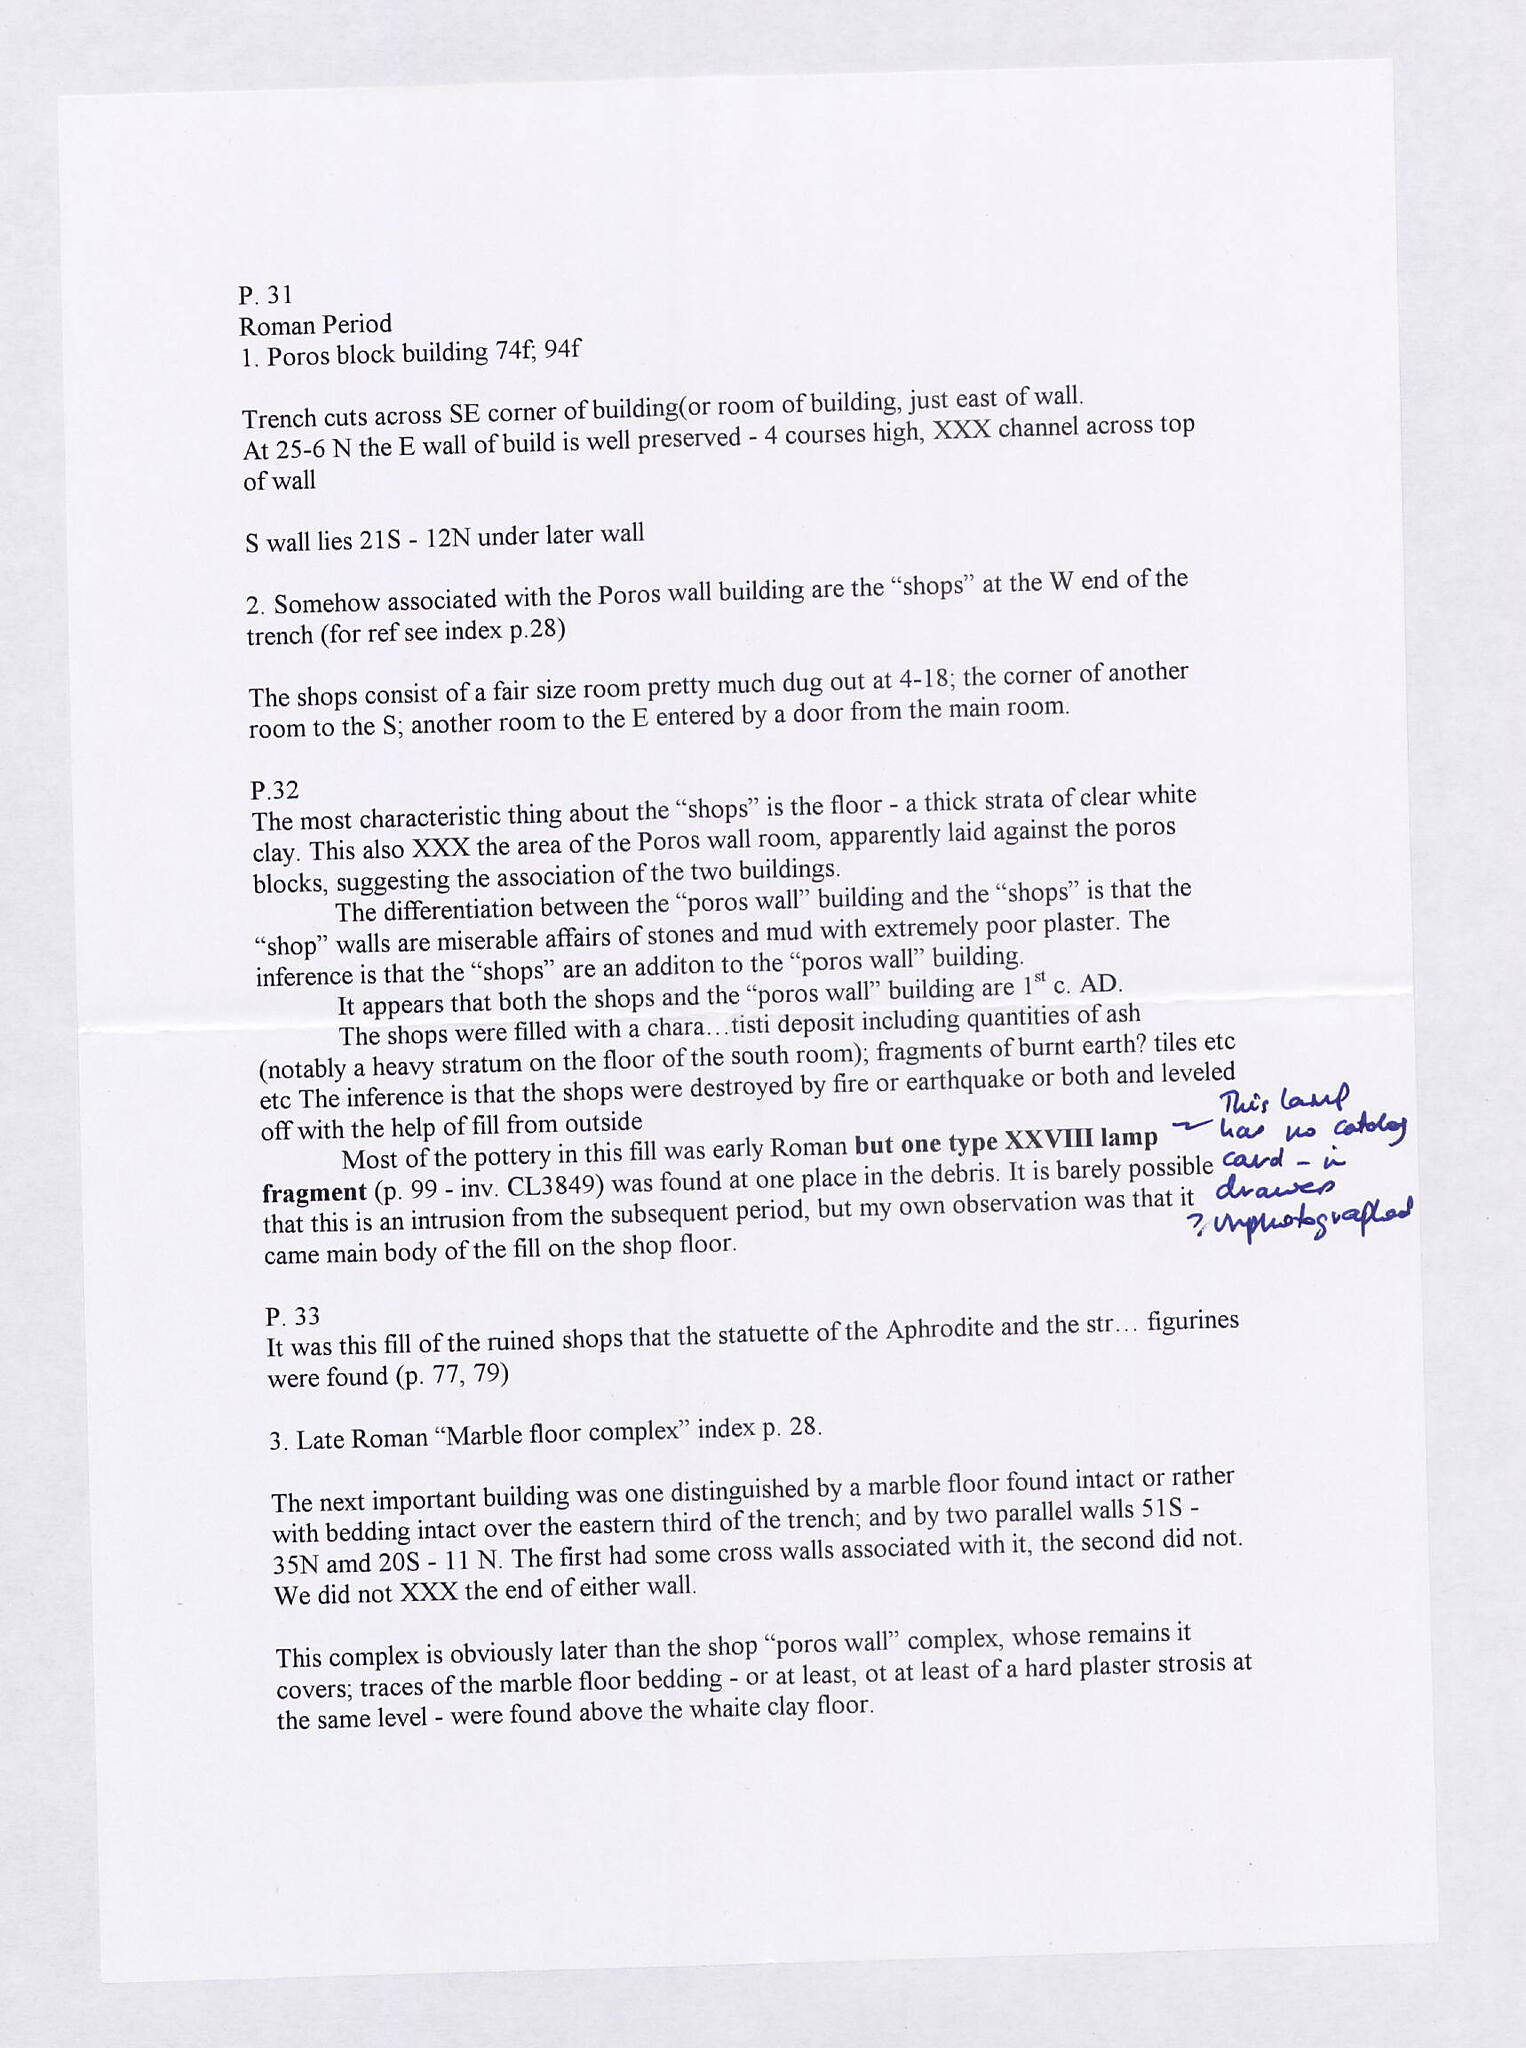 P. 31
Roman Period
1. Poros block building 74f; 94f
Trench cuts across SE corner of building(or room of building, just east of wall.
At 25-6 N the E wall of build is well preserved - 4 courses high, XXX channel across top
of wall
S wall lies 21S - 12N under later wall
2. Somehow associated with the Poros wall building are the “shops” at the W end of the
trench (for ref see index p.28)
The shops consist of a fair size room pretty much dug out at 4-18; the corner of another
room to the S; another room to the E entered by a door from the main room.
P.32
The most characteristic thing about the “shops” is the floor - a thick strata of clear white
clay. This also XXX the area of the Poros wall room, apparently laid against the poros
blocks, suggesting the association of the two buildings.
The differentiation between the “poros wall” building and the “shops” is that the
“shop” walls are miserable affairs of stones and mud with extremely poor plaster. The
inference is that the “shops” are an additon to the “poros wall” building.
It appears that both the shops and the “poros wall” building are 1st c. AD.
The shops were filled with a chara…tisti deposit including quantities of ash
(notably a heavy stratum on the floor of the south room); fragments of burnt earth? tiles etc
etc The inference is that the shops were destroyed by fire or earthquake or both and leveled
off with the help of fill from outside
Most of the pottery in this fill was early Roman but one type XXVIII lamp
fragment (p. 99 - inv. CL3849) was found at one place in the debris. It is barely possible
that this is an intrusion from the subsequent period, but my own observation was that it
came main body of the fill on the shop floor.
This lamp
has no catalog
card - in
drawer
? unphotographed
P. 33
It was this fill of the ruined shops that the statuette of the Aphrodite and the str… figurines
were found (p. 77, 79)
3. Late Roman “Marble floor complex” index p. 28.
The next important building was one distinguished by a marble floor found intact or rather
with bedding intact over the eastern third of the trench; and by two parallel walls 51S -
35N amd 20S - 11 N. The first had some cross walls associated with it, the second did not.
We did not XXX the end of either wall.
This complex is obviously later than the shop “poros wall” complex, whose remains it
covers; traces of the marble floor bedding - or at least, ot at least of a hard plaster strosis at
the same level - were found above the whaite clay floor.